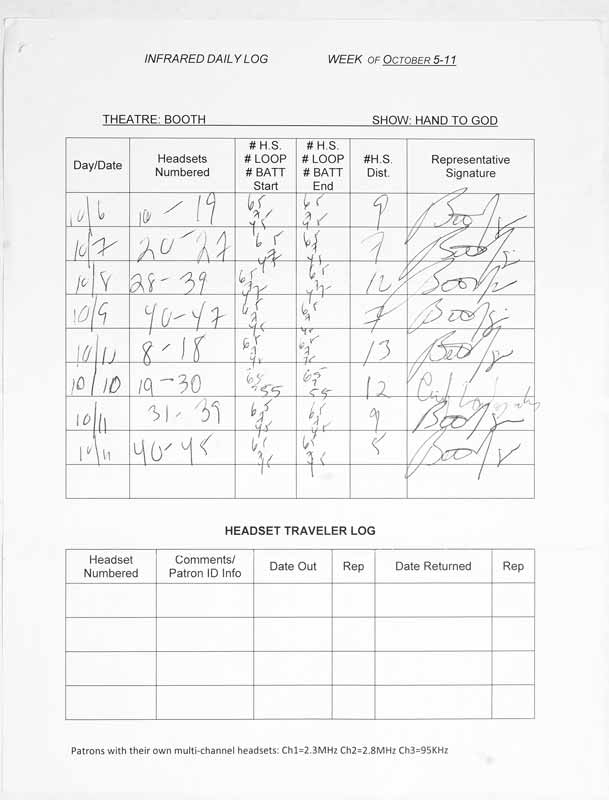 INFRARED DAILY LOG WEEK OF OCTOBER 5-11
THEATRE: BOOTH SHOW: HAND TO GOD
Day/Date
Headsets
Numbered
# H.S.
# LOOP
# BATT
Start
# H.S.
# LOOP
# BATT
End
#H.S.
Dist.
Representative
Signature
10/6 10-19 65 65 9
10/7 20-27 65 65 7
10/8 28-39 65 65 12
10/9 40-47 65 65 7
10/11 8-18 65 65 13
10/10 19-30 65 55 65 55 12
10/11 31-39 65 65 9
10/11 40-45 65 65 5
HEADSET TRAVELER LOG
Headset
Numbered
Comments/
Patron ID Info
Date Out
Rep
Date Returned
Rep
Patrons with their own multi-channel headsets: Ch1=2.3MHz Ch2=2.8MHz Ch3=95KHz